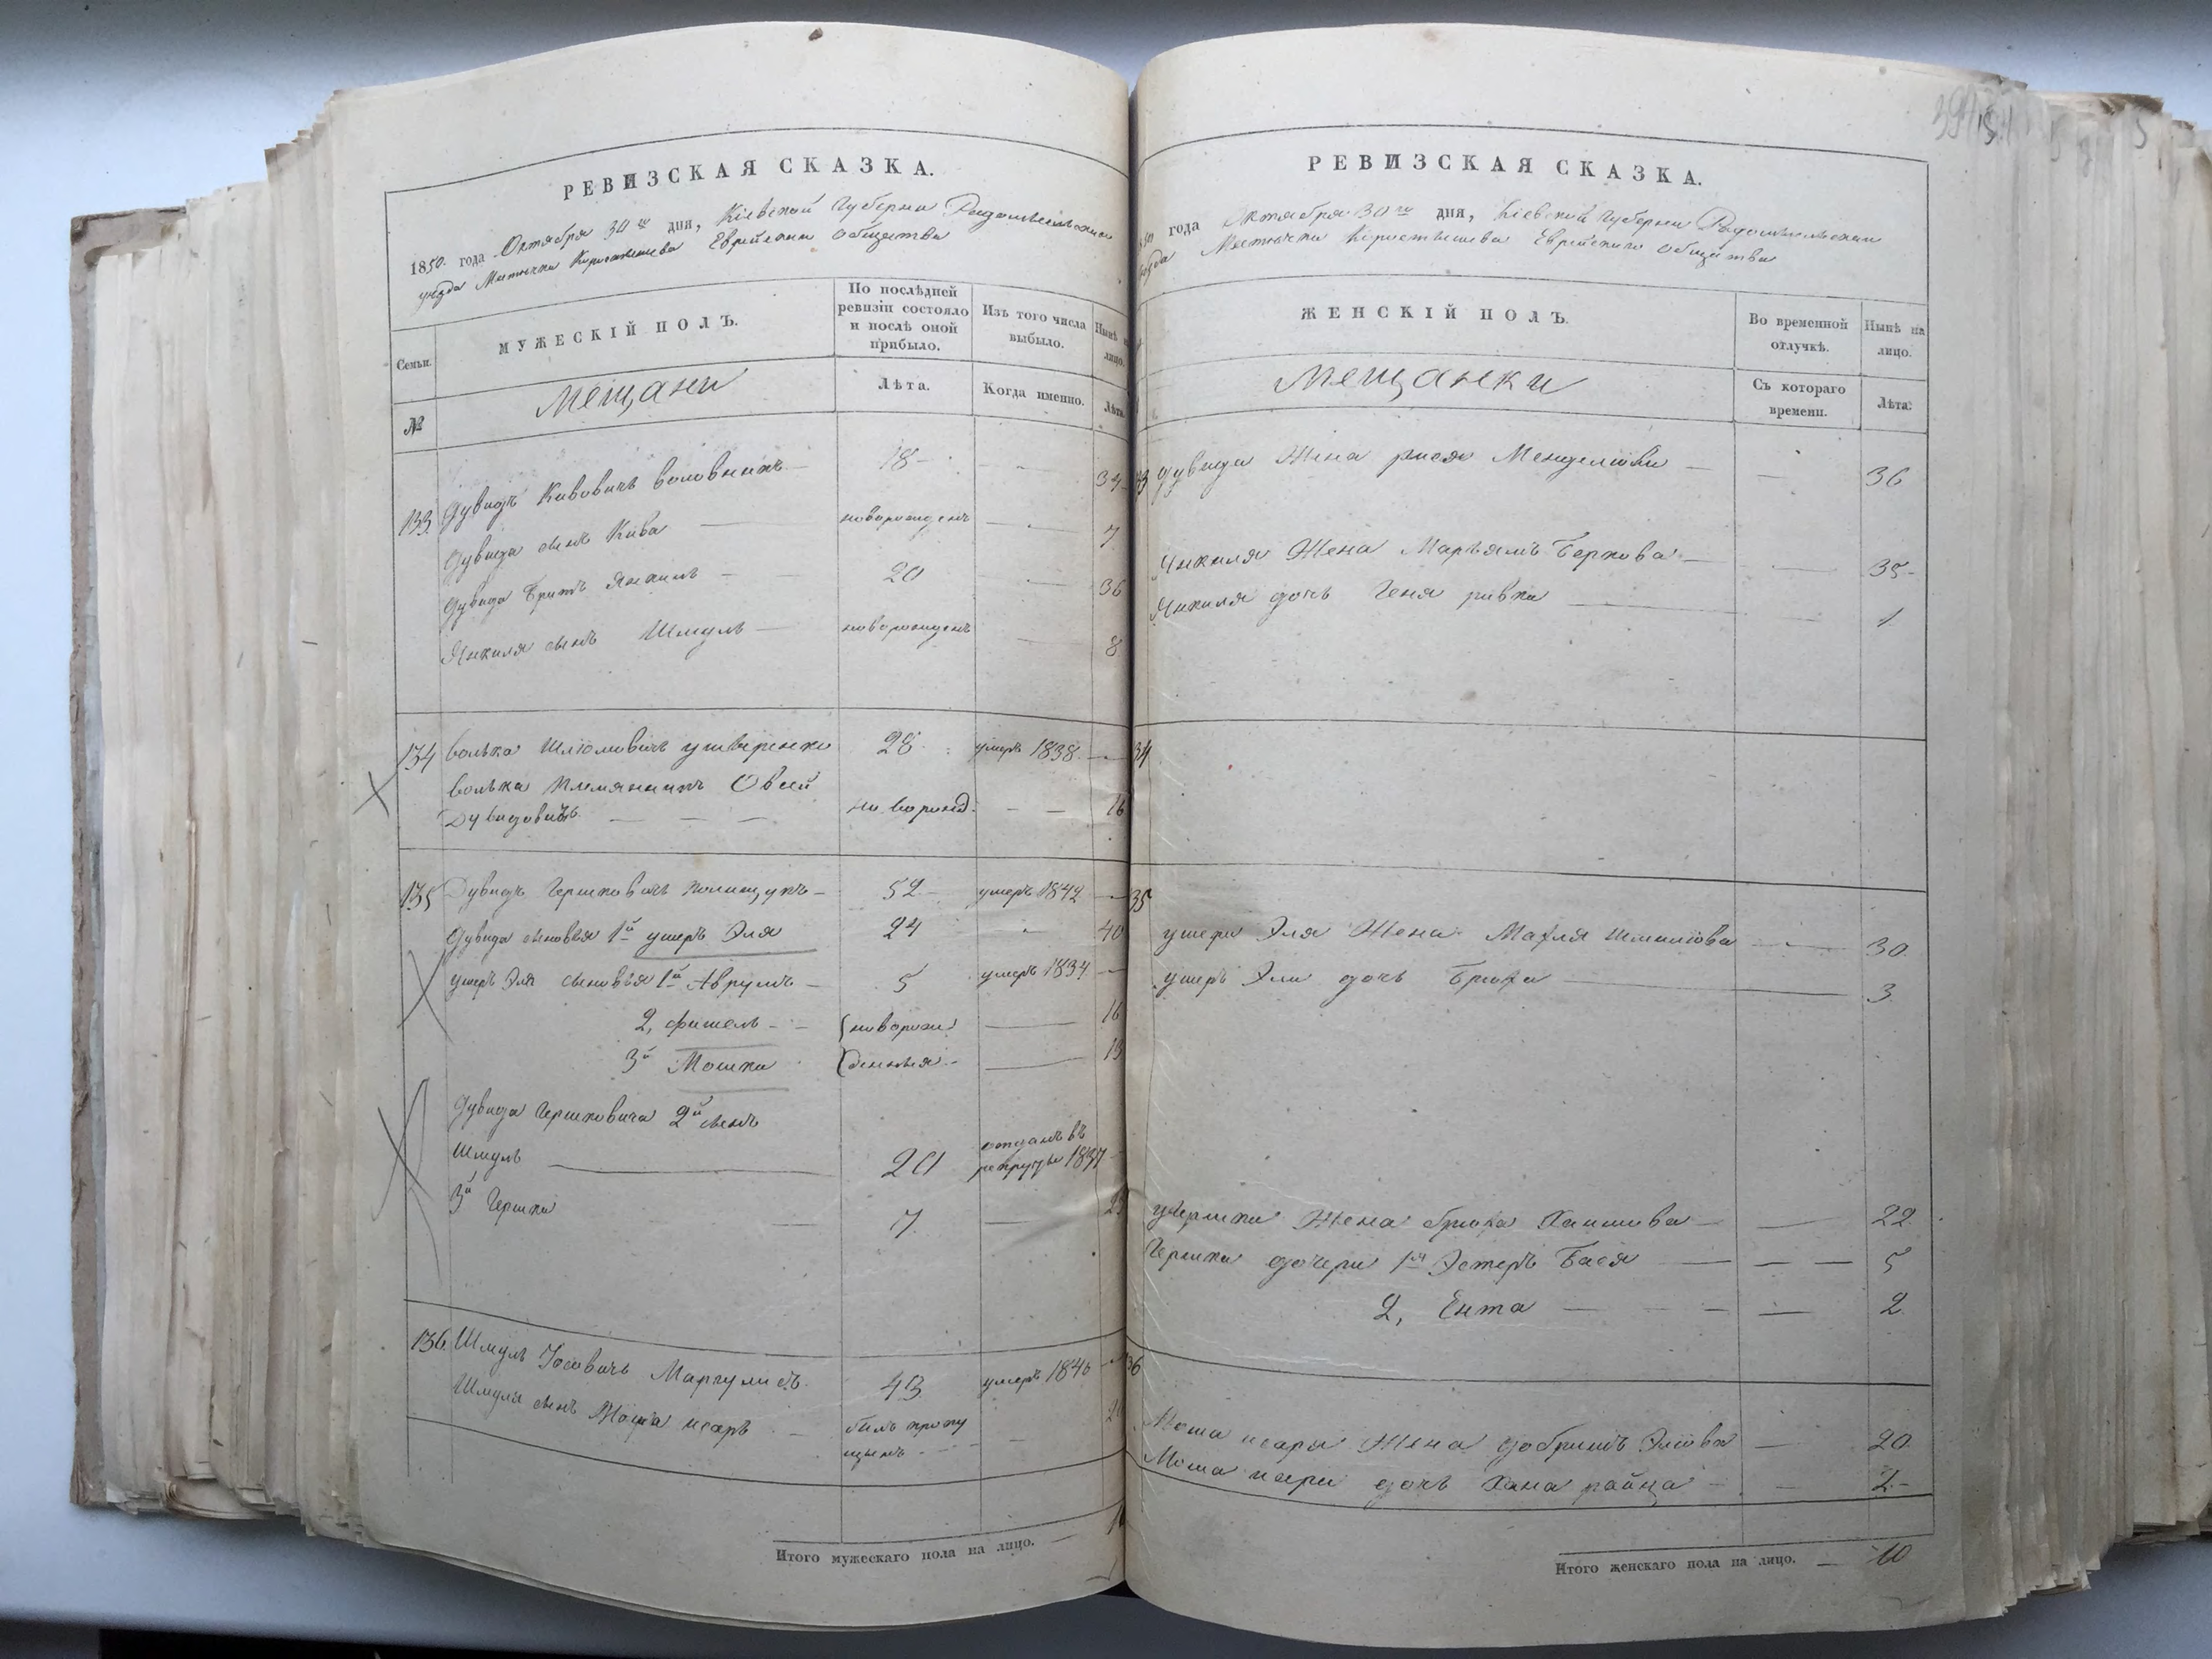 РЕВИЗСКАЯ СКАЗКА.
1850 года Октября 30го дня, Кіевской Губерніи Радомысльскаго
уезда Местечка Коростышева Еврейскаго общества
Семьи.
МУЖЕСКІЙ ПОЛЪ.
По послѣдней ревизіи состояло и послѣ оной прибыло.
Изъ того числа выбыло.
Нынѣ на лицо.
№
Мещани
Лѣта.
Когда именно.
Лѣта.
133 Дувидъ Кивовичъ воловникъ 18
Дувида сынъ Кива новорожденъ 7
Дувида братъ Янкиль 20 36
Янкиля сынъ Шмуль новорожденъ 8
134 волька Шліомовичъ умер 1838 28
волька племянникъ Овсей
Дувидовичъ новорожд. 16
135 Дувидъ Гершковичъ полищукъ 52 умеръ 1842
Дувида сыновья 1й ушеръ Эля 24 40
ушеръ Эля сыновья 1й Аврумъ 5 умеръ 1834
2, фишель новорож 16
3й Мошка денныя 13
Дувида Гершковича 2й сынъ
Шмуль 20 отданъ въ рекруты 1837
3й Гершко 7 23
136. Шмуль Іосовичъ Маргулисъ 43 умеръ 1840
Шмуля сынъ Моша исаръ былъ пропу
щенъ
Итого мужескаго пола на лицо.
РЕВИЗСКАЯ СКАЗКА.
года Октября 30го дня, Кіевской Губерніи Радомысльскаго
уезда Местечка Коростышева Еврейскаго общества
ЖЕНСКІЙ ПОЛЪ.
Во временной отлучкѣ.
Нынѣ на лицо.
Мещанки
Съ котораго времени.
Лѣта.
Дувида Жена рися Менделіова 36
Янкиля Жена Марьямъ Беркова 35
Янкиля дочь Геня ривка 1
34
35
ушера Эля Жена Махля Шмиліова 30
ушеръ Эли дочь Бруха 3
Гершка Жена бруха Хаимова 22
Гершка дочери 1я Эстеръ Бася 5
2, Ента 2
36
Моша исара Жена добришъ Эліова 20
Моша исара дочь Хана райца 2
Итого женскаго пола на лицо. 10